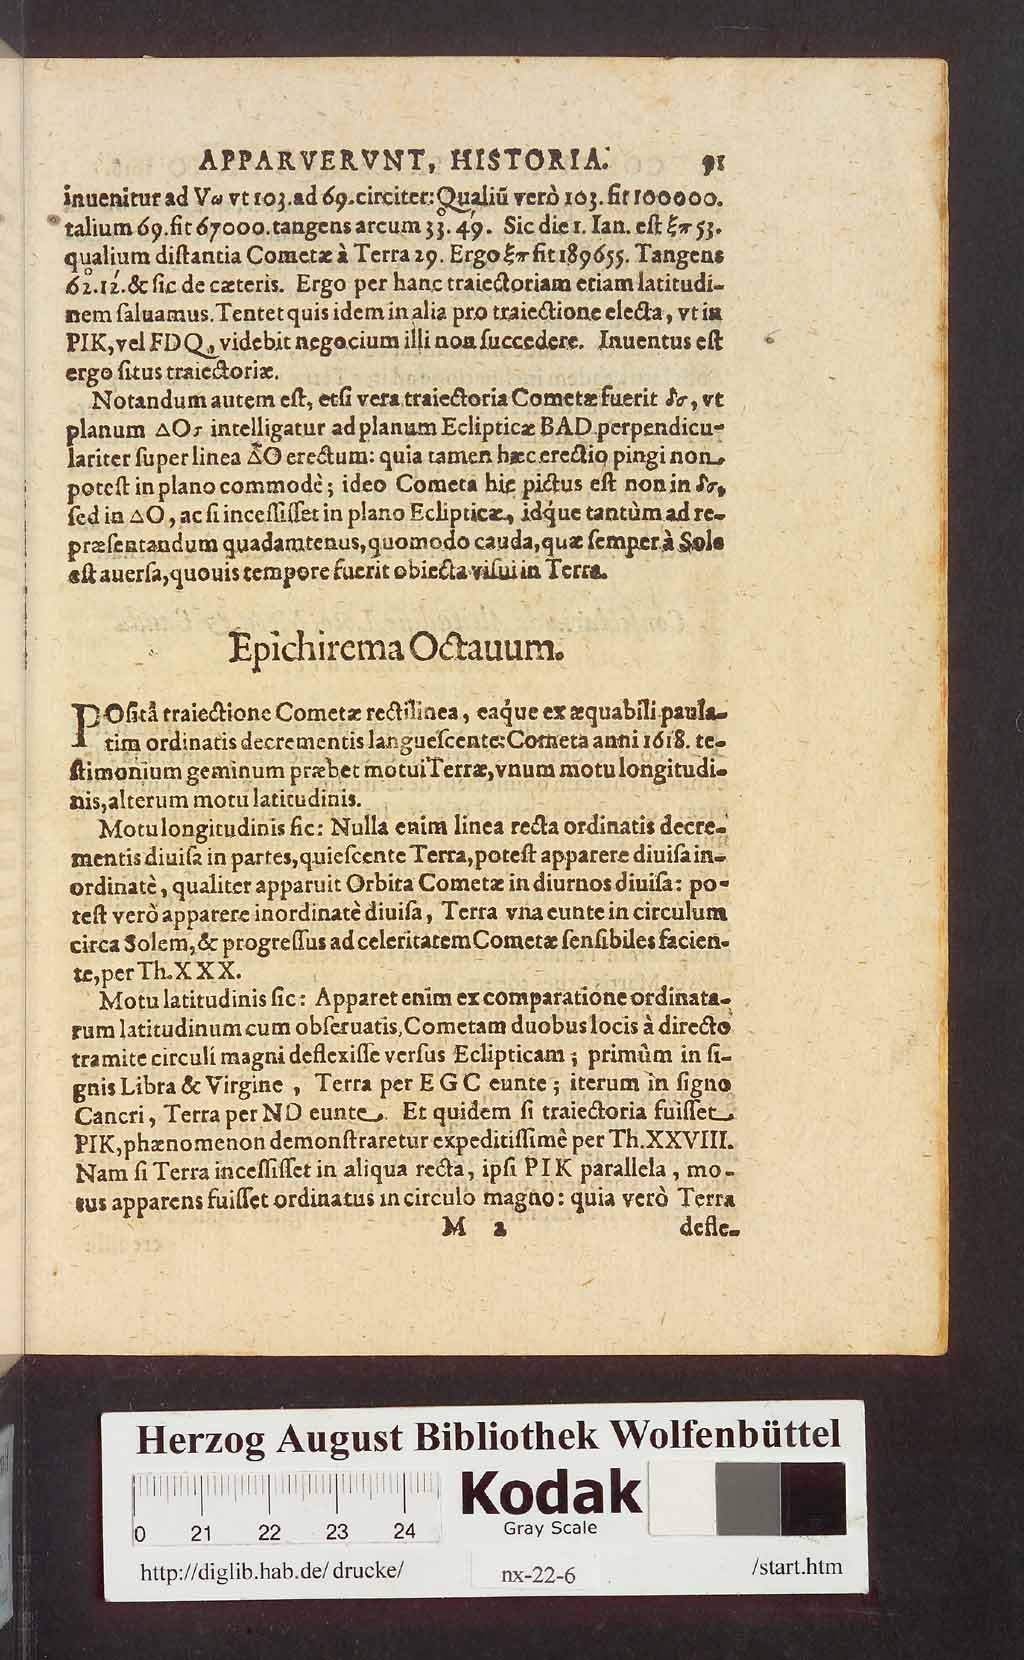 APPARVERVNT, HISTORIA. 91
inuenitur ad Vω vt 103. ad 69. circiter: Qualiū verò 103. fit 100000.
talium 69. fit 67000. tangens arcum 33°. 49′. Sic die 1. Ian. est ξπ 53.
qualium distantia Cometæ à Terra 29. Ergo ξπ fit 189655. Tangens
62°. 12′. & sic de cæteris. Ergo per hanc traiectoriam etiam latitudi-
nem saluamus. Tentet quis idem in alia pro traiectione electa, vt in
PIK, vel FDQ, videbit negocium illi non succedere. Inuentus est
ergo situs traiectoriæ.
Notandum autem est, etsi vera traiectoria Cometæ fuerit δσ, vt
planum ΔOσ intelligatur ad planum Eclipticæ BAD perpendicu-
lariter super linea ΔO erectum: quia tamen hæc erectio pingi non
potest in plano commodè; ideo Cometa hic pictus est non in δσ,
sed in ΔO, ac si incessisset in plano Eclipticæ, idq́ue tantùm ad re-
præsentandum quadamtenus, quomodo cauda, quæ semper à Sole
est auersa, quouis tempore fuerit obiecta visui in Terra.
Epichirema Octauum.
POsitâ traiectione Cometæ rectilinea, eaq́ue ex æquabili paula-
tim ordinatis decrementis languescente: Cometa anni 1618. te-
stimonium geminum præbet motui Terræ, vnum motu longitudi-
nis, alterum motu latitudinis.
Motu longitudinis sic: Nulla enim linea recta ordinatis decre-
mentis diuisa in partes, quiescente Terra, potest apparere diuisa in-
ordinatè, qualiter apparuit Orbita Cometæ in diurnos diuisa: po-
test verò apparere inordinatè diuisa, Terra vna eunte in circulum
circa Solem, & progressus ad celeritatem Cometæ sensibiles facien-
te, per Th. XXX.
Motu latitudinis sic: Apparet enim ex comparatione ordinata-
rum latitudinum cum obseruatis, Cometam duobus locis à directo
tramite circuli magni deflexisse versus Eclipticam; primùm in si-
gnis Libra & Virgine, Terra per EGC eunte; iterum in signo
Cancri, Terra per ND eunte. Et quidem si traiectoria fuisset
PIK, phænomenon demonstraretur expeditissimè per Th. XXVIII.
Nam si Terra incessisset in aliqua recta, ipsi PIK parallela, mo-
tus apparens fuisset ordinatus in circulo magno: quia verò Terra
M 2 defle-
Herzog August Bibliothek Wolfenbüttel
Kodak
Gray Scale
0 21 22 23 24
http://diglib.hab.de/drucke/ nx-22-6 /start.htm